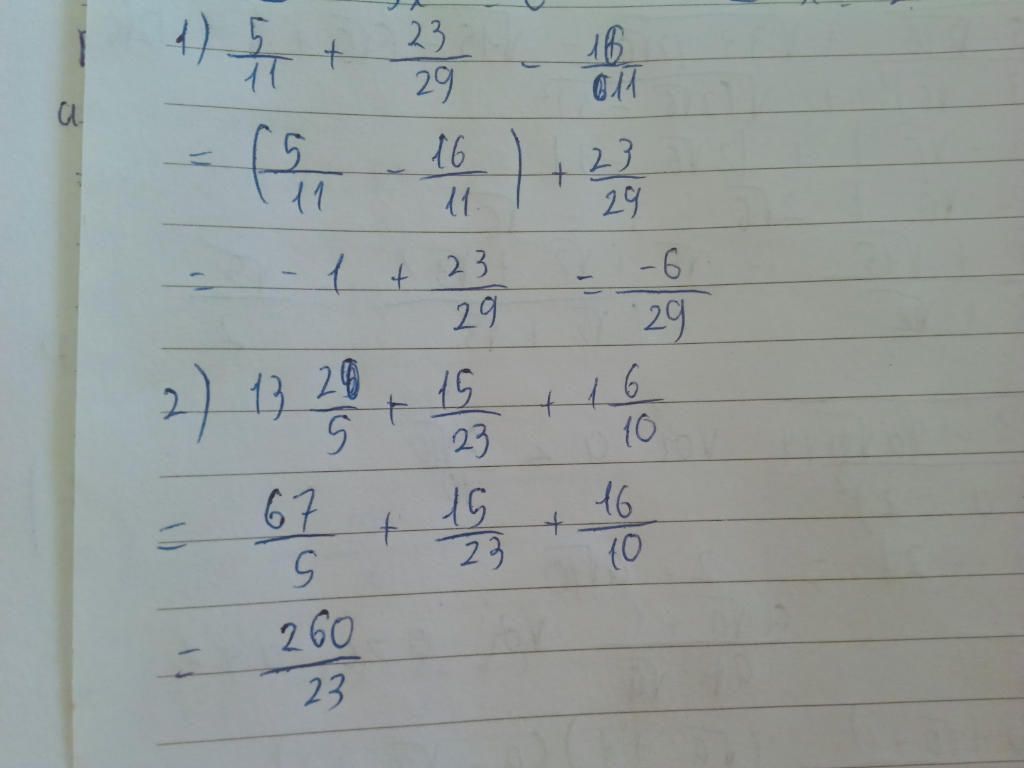 1) 5/11 + 23/29 - 16/11
= (5/11 - 16/11) + 23/29
= -1 + 23/29 = -6/29
2) 13 2/5 + 15/23 + 1 6/10
= 67/5 + 15/23 + 16/10
= 260/23